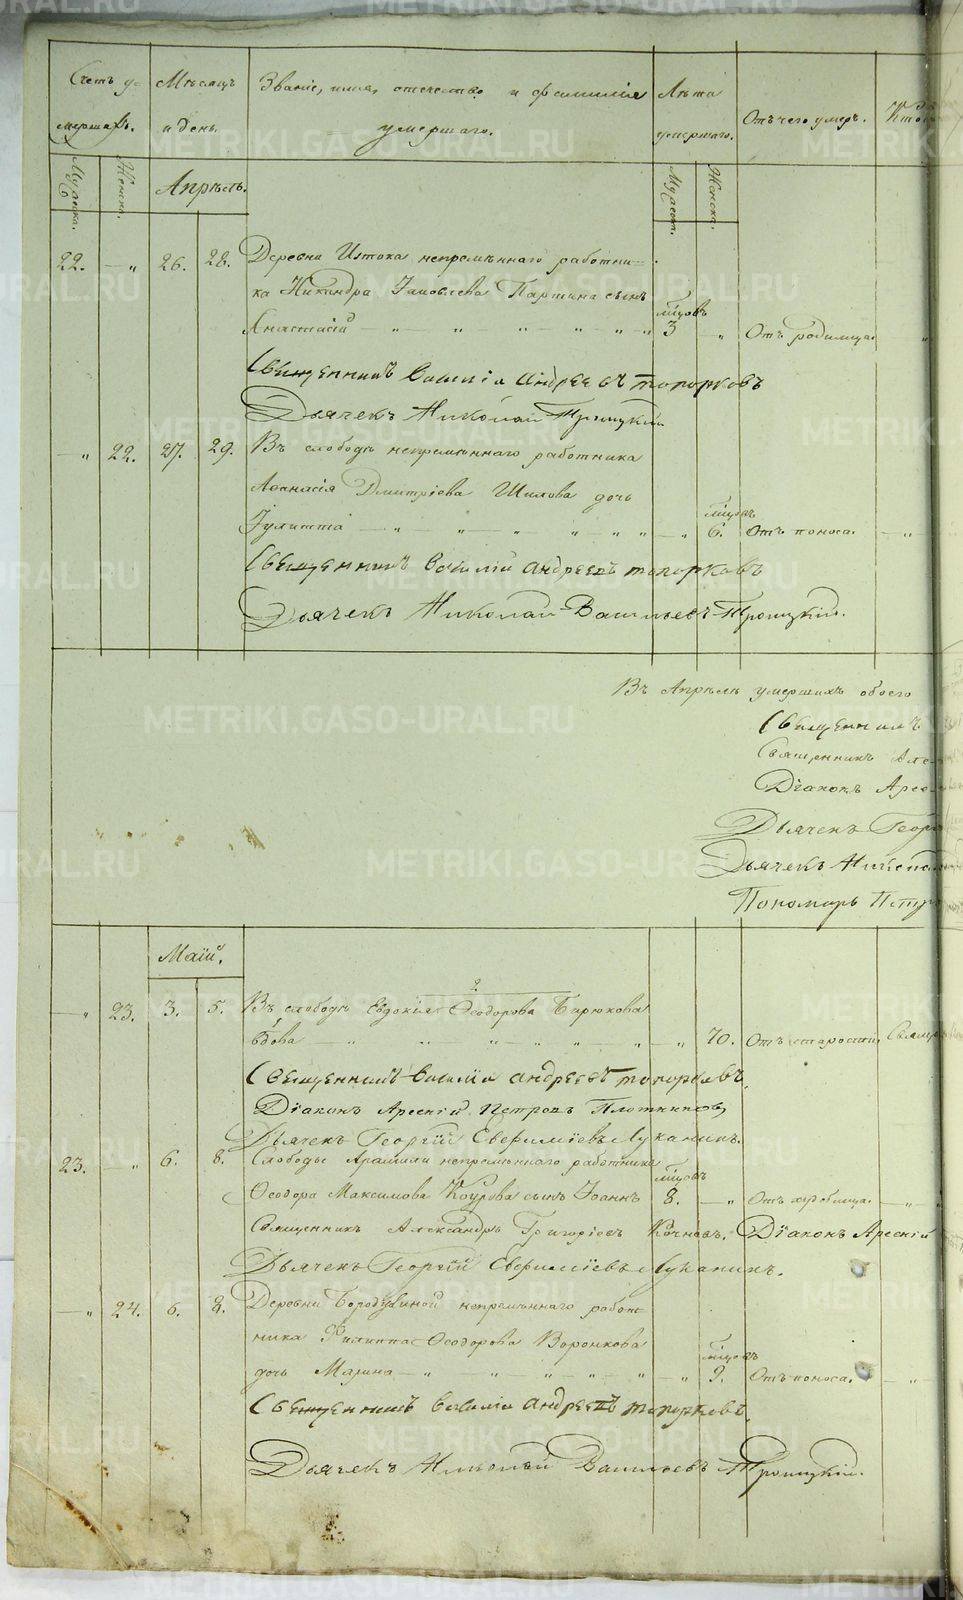 Счетъ у-
мершихъ.
Мѣсяцъ
и день.
Званіе, имя, отечество и фамилія
умершаго.
Лѣта
умершаго.
Отъ чего умеръ.
Мужеска.
Женска.
Апрѣль.
Мужеск.
Женска.
22. „ 26. 28. Деревни Истока непремѣннаго работни-
ка Никандра Яковлева Партина сынъ
мѣсяцовъ
Анастасій „ „ „ „ „ „ 3 „ Отъ родимца. „
Священникъ Василій Андреевъ Топорковъ
Дьячекъ Николай Троицкій.
„ 22. 27. 29. Въ слободѣ непремѣннаго работника
Аѳанасія Дмитріева Шилова дочь
мѣсяцовъ
Іулитта „ „ „ „ „ „ „ 6. Отъ поноса. „
Священникъ Василій Андреевъ Топорковъ
Дьячекъ Николай Васильевъ Троицкій.
Въ Апрѣлѣ умершихъ обоего
Священникъ
Священникъ Але
Діаконъ Арсе
Дьячекъ Георг
Дьячекъ Никола
Пономарь Петр
Маій.
„ 23. 3. 5. Въ слободѣ Евдокія Ѳеодорова Бирюкова
вдова „ „ „ „ „ „ 70. Отъ старости, Свящ
Священникъ Василій Андреевъ Топорковъ,
Діаконъ Арсеній Петровъ Плотниковъ,
Дьячекъ Георгій Евфиміевъ Луканинъ.
23. „ 6. 8. Слободы Арамили непремѣннаго работника
мѣсяцовъ
Ѳеодора Максимова Коурова сынъ Іоаннъ 8. „ Отъ хреблица. „
Священникъ Александръ Григоріевъ Кочневъ. Діаконъ Арсеній
Дьячекъ Георгій Евфиміевъ Луканинъ.
„ 24. 6. 8. Деревни Бородулиной непремѣннаго работ-
ника Филиппа Ѳеодорова Воронкова
мѣсяцовъ
дочь Марина „ „ „ „ „ „ 9. Отъ поноса. „
Священникъ Василій Андреевъ Топорковъ,
Дьячекъ Николай Васильевъ Троицкій.
METRIKI.GASO-URAL.RU